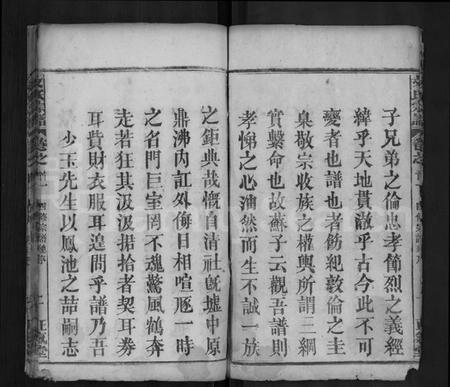 子兄弟之倫忠孝簡烈之義經
緯乎天地貫澈乎古今此不可
變者也譜也者飭紀敦倫之圭
臬敬宗收族之權輿所謂三綱
實繫命也故蘇子云觀吾譜則
孝悌之心油然而生不誠一族
之鉅典哉慨自清社旣墟中原
鼎沸內訌外侮日相喧豗一時
之名門巨室罔不魂驚風鶴奔
走若狂其汲汲掯拾者契耳券
耳貲財衣服耳遑問乎譜乃吾
少玉先生以鳳池之喆嗣志